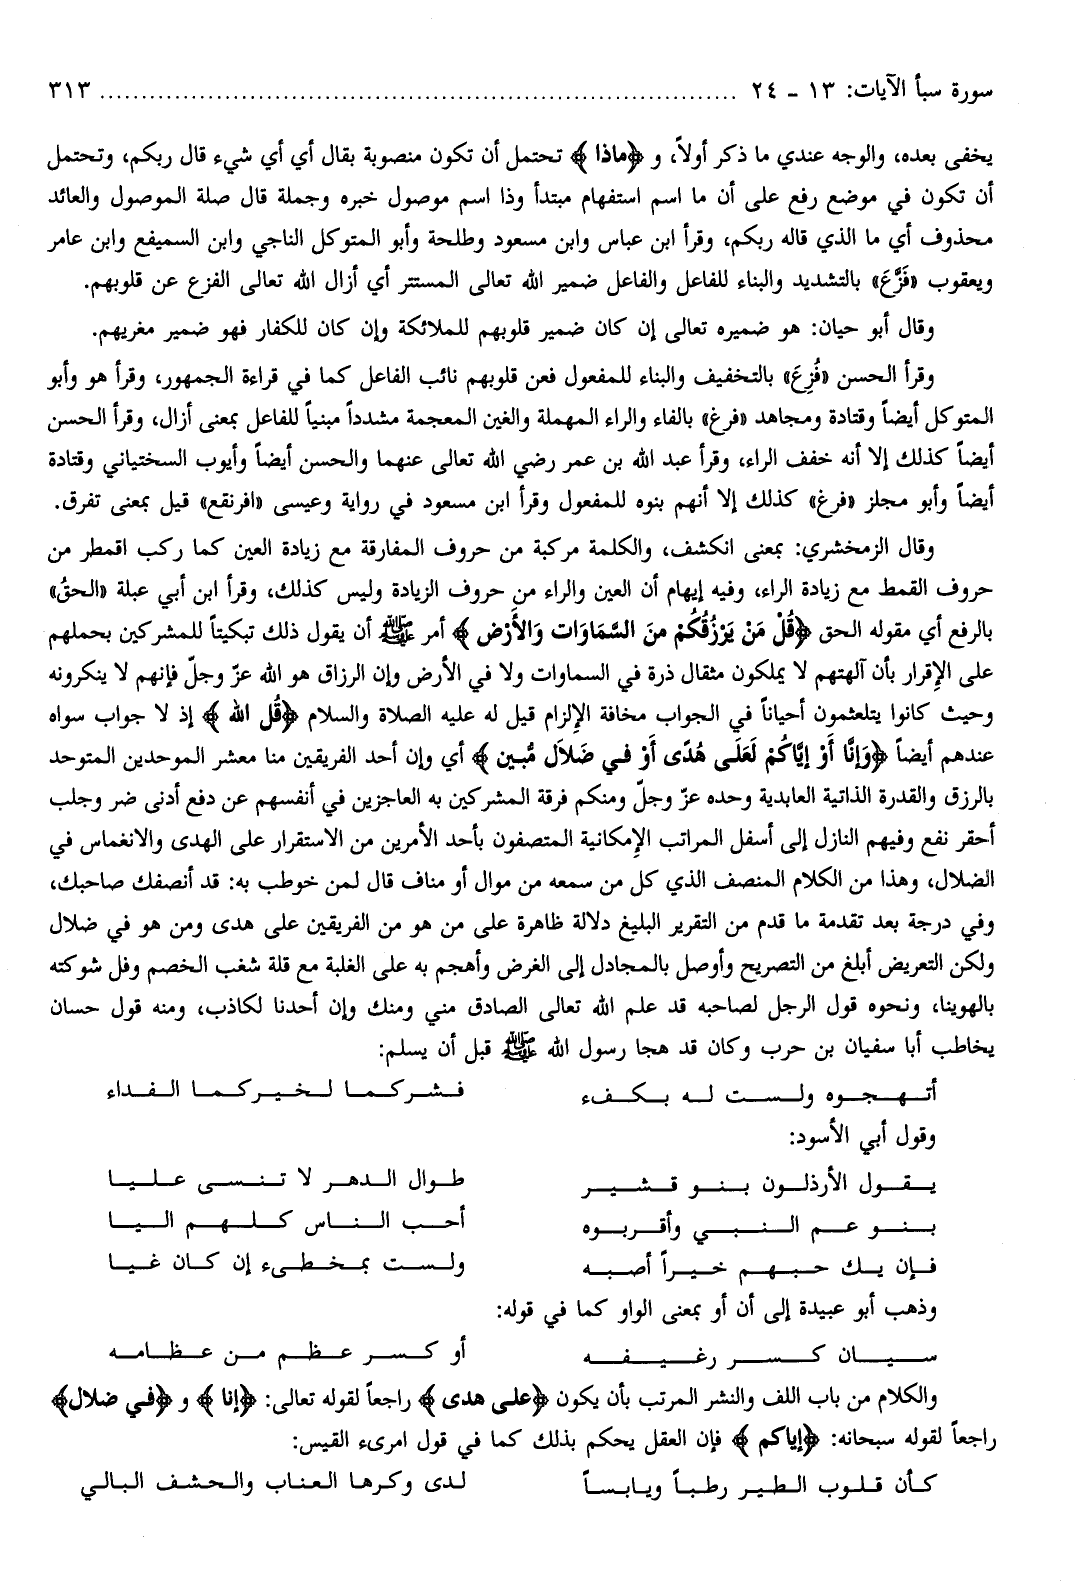 سورة سبأ الآيات: ١٣ ـ ٢٤ ........................................................................ ٣١٣
يخفى بعده، والوجه عندي ما ذكر أولاً، و ﴿ماذا﴾ تحتمل أن تكون منصوبة بقال أي أي شيء قال ربكم، وتحتمل
أن تكون في موضع رفع على أن ما اسم استفهام مبتدأ وذا اسم موصول خبره وجملة قال صلة الموصول والعائد
محذوف أي ما الذي قاله ربكم، وقرأ ابن عباس وابن مسعود وطلحة وأبو المتوكل الناجي وابن السميفع وابن عامر
ويعقوب «فَزَّعَ» بالتشديد والبناء للفاعل والفاعل ضمير الله تعالى المستتر أي أزال الله تعالى الفزع عن قلوبهم.
وقال أبو حيان: هو ضميره تعالى إن كان ضمير قلوبهم للملائكة وإن كان للكفار فهو ضمير مغريهم.
وقرأ الحسن «فُزِعَ» بالتخفيف والبناء للمفعول فعن قلوبهم نائب الفاعل كما في قراءة الجمهور، وقرأ هو وأبو
المتوكل أيضاً وقتادة ومجاهد «فرغ» بالفاء والراء المهملة والغين المعجمة مشدداً مبنياً للفاعل بمعنى أزال، وقرأ الحسن
أيضاً كذلك إلا أنه خفف الراء، وقرأ عبد الله بن عمر رضي الله تعالى عنهما والحسن أيضاً وأيوب السختياني وقتادة
أيضاً وأبو مجلز «فرغ» كذلك إلا أنهم بنوه للمفعول وقرأ ابن مسعود في رواية وعيسى «افرنقع» قيل بمعنى تفرق.
وقال الزمخشري: بمعنى انكشف، والكلمة مركبة من حروف المفارقة مع زيادة العين كما ركب اقمطر من
حروف القمط مع زيادة الراء، وفيه إيهام أن العين والراء من حروف الزيادة وليس كذلك، وقرأ ابن أبي عبلة «الحقُ»
بالرفع أي مقوله الحق ﴿قُلْ مَنْ يَرْزُقُكُمْ منَ السَّمَاوَات وَالأَرْض﴾ أمر ﷺ أن يقول ذلك تبكيتاً للمشركين بحملهم
على الإقرار بأن آلهتهم لا يملكون مثقال ذرة في السماوات ولا في الأرض وإن الرزاق هو الله عزّ وجلّ فإنهم لا ينكرونه
وحيث كانوا يتلعثمون أحياناً في الجواب مخافة الإلزام قيل له عليه الصلاة والسلام ﴿قُل الله﴾ إذ لا جواب سواه
عندهم أيضاً ﴿وَإنَّا أَوْ إيَّاكُمْ لَعَلَى هُدًى أوْ في ضَلاَل مُّبين﴾ أي وإن أحد الفريقين منا معشر الموحدين المتوحد
بالرزق والقدرة الذاتية العابدية وحده عزّ وجلّ ومنكم فرقة المشركين به العاجزين في أنفسهم عن دفع أدنى ضر وجلب
أحقر نفع وفيهم النازل إلى أسفل المراتب الإمكانية المتصفون بأحد الأمرين من الاستقرار على الهدى والانغماس في
الضلال، وهذا من الكلام المنصف الذي كل من سمعه من موال أو مناف قال لمن خوطب به: قد أنصفك صاحبك،
وفي درجة بعد تقدمة ما قدم من التقرير البليغ دلالة ظاهرة على من هو من الفريقين على هدى ومن هو في ضلال
ولكن التعريض أبلغ من التصريح وأوصل بالمجادل إلى الغرض وأهجم به على الغلبة مع قلة شغب الخصم وفل شوكته
بالهوينا، ونحوه قول الرجل لصاحبه قد علم الله تعالى الصادق مني ومنك وإن أحدنا لكاذب، ومنه قول حسان
يخاطب أبا سفيان بن حرب وكان قد هجا رسول الله ﷺ قبل أن يسلم:
أتهجوه ولست له بكفء    فشركما لخيركما الفداء
وقول أبي الأسود:
يقول الأرذلون بنو قشير    طوال الدهر لا تنسى عليا
بنو عم النبي وأقربوه    أحب الناس كلهم اليا
فإن يك حبهم خيراً أصبه    ولست بمخطىء إن كان غيا
وذهب أبو عبيدة إلى أن أو بمعنى الواو كما في قوله:
سيان كسر رغيفه    أو كسر عظم من عظامه
والكلام من باب اللف والنشر المرتب بأن يكون ﴿على هدى﴾ راجعاً لقوله تعالى: ﴿إنا﴾ و ﴿في ضلال﴾
راجعاً لقوله سبحانه: ﴿إياكم﴾ فإن العقل يحكم بذلك كما في قول امرىء القيس:
كأن قلوب الطير رطباً ويابساً    لدى وكرها العناب والحشف البالي